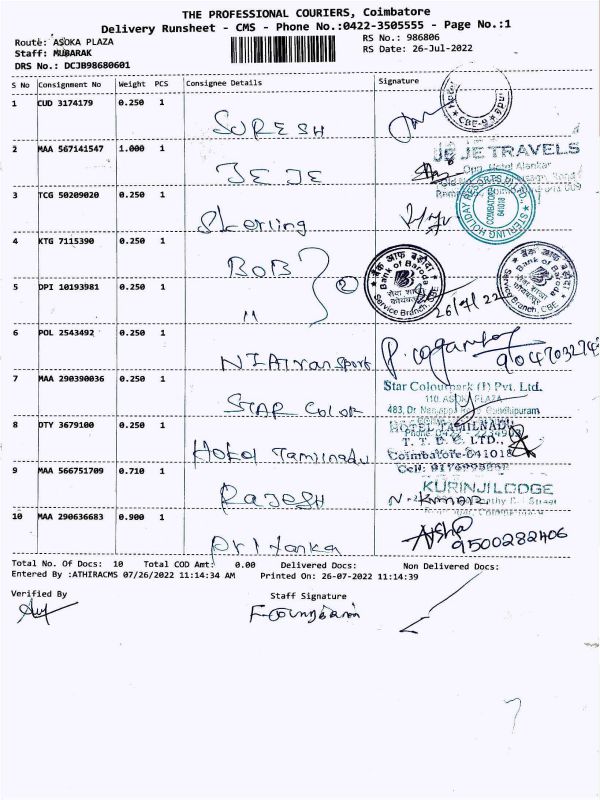 THE PROFESSIONAL COURIERS, Coimbatore
Delivery Runsheet - CMS - Phone No.:0422-3505555 - Page No.:1
Route: ASOKA PLAZA
RS No.: 986806
Staff: MUBARAK
RS Date: 26-Jul-2022
DRS No.: DCJB98680601
S No Consignment No Weight PCS Consignee Details Signature
1 CUD 3174179 0.250 1 SURESH
CBE-9
2 MAA 567141547 1.000 1 JE JE
JE JE TRAVELS
Opp. Hotel Alankar
3 TCG 50209020 0.250 1 Sterling
STERLING HOLIDAY RESORTS
COIMBATORE
641018
4 KTG 7115390 0.250 1 BOB
बैंक ऑफ बड़ौदा
Bank of Baroda
Service Branch, CBE
बैंक ऑफ बड़ौदा
Bank of Baroda
Service Branch, CBE.
5 DPI 10193981 0.250 1 "
2
26/7/22
6 POL 2543492 0.250 1 NTA Transport
7 MAA 290390036 0.250 1 STAR COLOR
Star Colourpark (I) Pvt. Ltd.
110, ASOKA PLAZA
483, Dr. Nanjappa Road, Gandhipuram
8 DTY 3679100 0.250 1 Hotel Tamilnadu
HOTEL TAMILNADU
T. T. D. C. LTD.,
Coimbatore-641018
9 MAA 566751709 0.710 1 RAJESH
KURINJI LODGE
N. Kumar
10 MAA 290636683 0.900 1 Pritanka
9500282406
Total No. Of Docs: 10 Total COD Amt: 0.00 Delivered Docs: Non Delivered Docs:
Entered By :ATHIRACMS 07/26/2022 11:14:34 AM Printed On: 26-07-2022 11:14:39
Verified By
Staff Signature